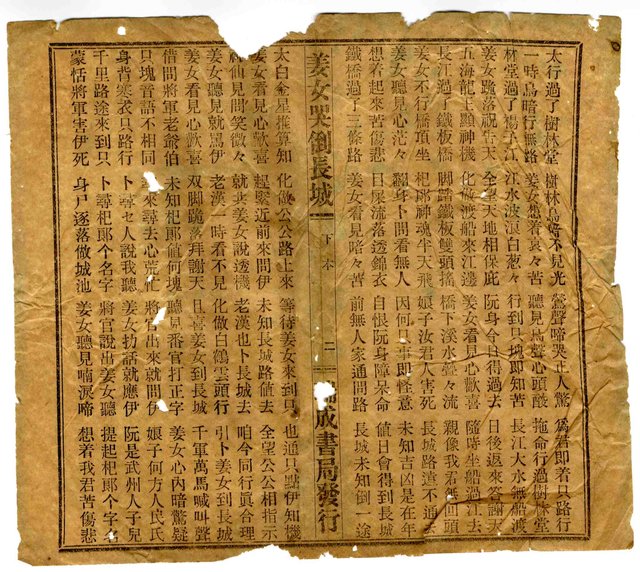 太行過了樹林堂 樹林烏暗不見光 鶯聲啼哭正人驚 為君即着只路行
一時烏暗行無路 姜女想着哀々苦 聽見鳥聲心頭酸 拖命行過樹林堂
林堂過了楊子江 江水波浪白葱々 行到只塊即知苦 長江大水無船渡
姜女跪落祝告天 全望天地相保庇 阮身今日得過去 日後返來答謝天
五海龍王顯神機 化做渡船來江邊 姜女看見心歡喜 隨時坐船過江去
長江過了鐵板橋 脚踏鐵板雙頭搖 橋下溪水營々流 親像我君無回頭
姜女不行橋頂坐 杞郎神魂半天飛 娘子汝君人害死 長城路遠不通去
姜女聽見心茫々 翻身卜問看無人 因何只事即怪意 未知吉凶是在年
想着起來苦傷悲 目屎流落透錦衣 自恨阮身障呆命 值日會得到長城
鐵橋過了三條路 姜女看見暗々苦 前無人家通問路 長城未知倒一途
姜女哭倒長城 下本 二 成書局發行
太白金星推算知 化做公公路上來 等待姜女來到只 也通只點伊知機
姜女看見心歡喜 趕緊近前來問伊 未知長城路值去 全望公公相指示
仙見問笑微々 就共姜女說透機 老漢也卜長城去 咱今同行真合理
姜女聽見就罵伊 老漢一時看不見 化做白鶴雲頭行 引卜姜女到長城
姜女看見心歡喜 双脚跪落拜謝天 且喜姜女到長城 千軍萬馬喊叫聲
借問將軍老爺伯 未知杞郎值何塊 聽見番官打正字 姜女心內暗驚疑
只塊音語不相同 尋來尋去心荒忙 將官出來就問伊 娘子何方人民氏
身背寒衣只路行 卜尋七人說我聽 姜女扐話就應伊 阮是武州人子兒
千里路途來到只 卜尋杞郎个名字 將官說出姜女聽 提起杞郎个字名
蒙恬將軍害伊死 身尸逐落做城池 姜女聽見喃淚啼 想着我君苦傷悲